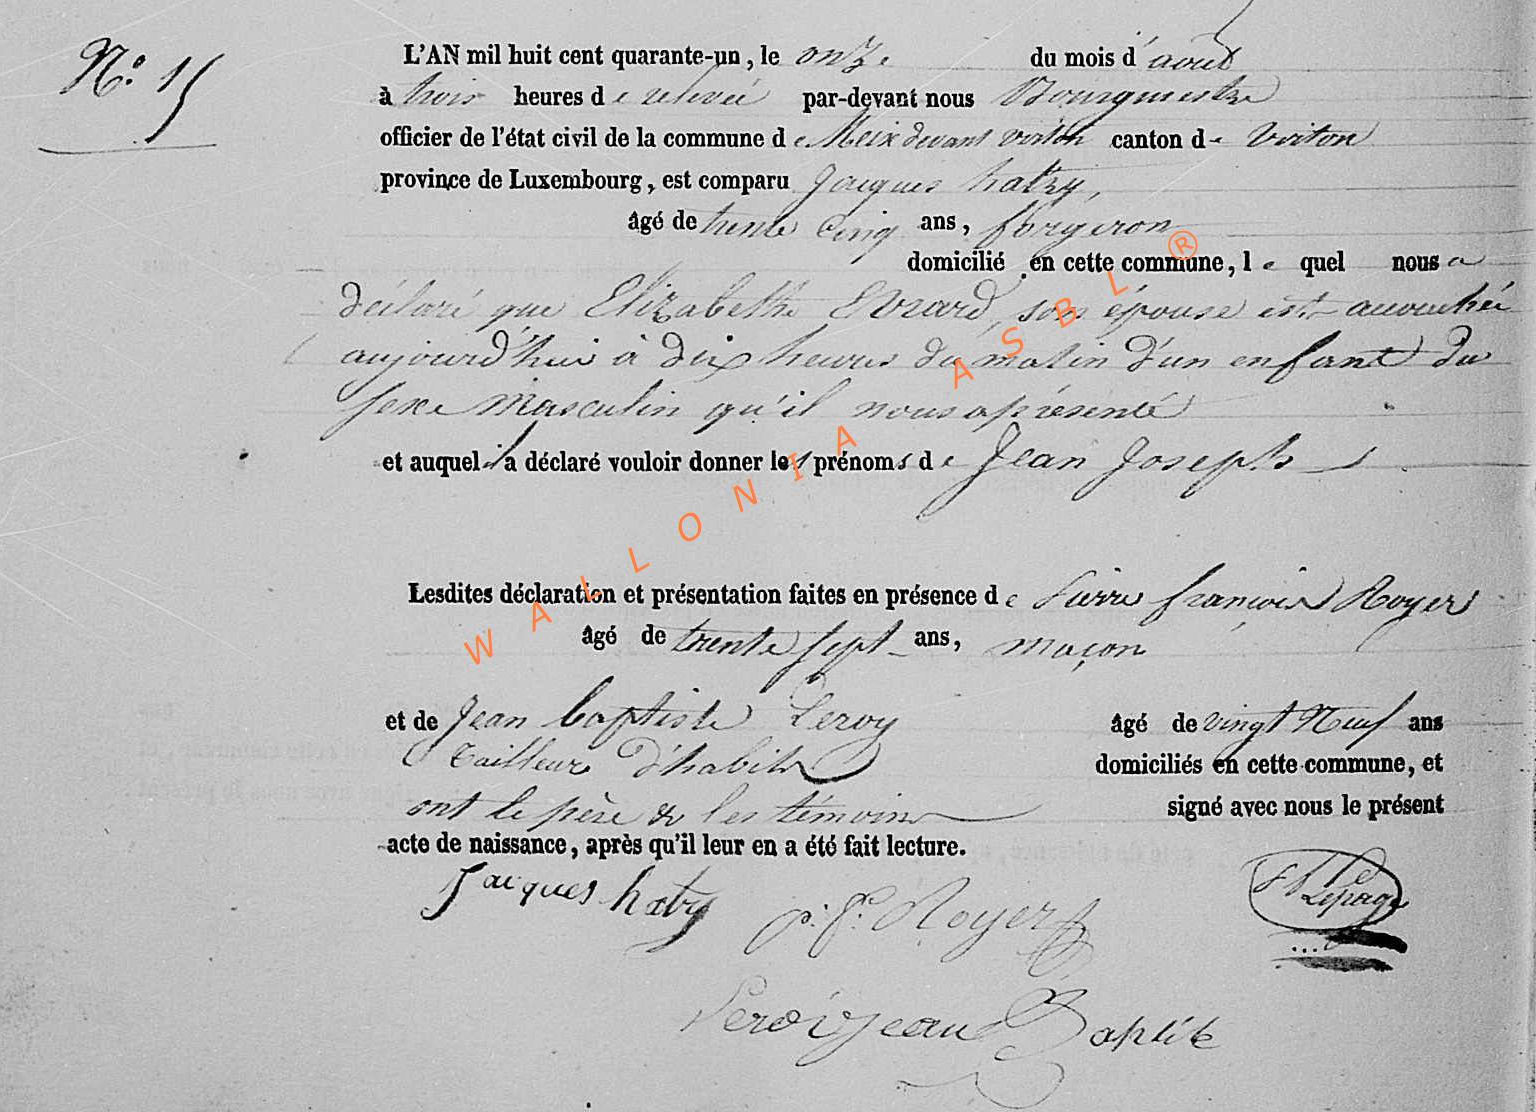 N.º 15
L'AN mil huit cent quarante-un, le onze du mois d'août
à trois heures de relevée par-devant nous Bourgmestre
officier de l'état civil de la commune de Meix devant virton canton de Virton
province de Luxembourg, est comparu Jacques hatry,
âgé de trente cinq ans, forgeron
domicilié en cette commune, le quel nous a
déclaré que Elizabethe Evrard, son épouse est accouchée
aujourd'hui à dix heures du matin d'un enfant du
sexe masculin qu'il nous a présenté
et auquel il a déclaré vouloir donner les prénoms de Jean Joseph
Lesdites déclaration et présentation faites en présence de Pierre françois Royer
âgé de trente sept ans, maçon
et de Jean baptiste Leroy âgé de vingt Neuf ans
Tailleur d'habits domiciliés en cette commune, et
ont le père & les témoins signé avec nous le présent
acte de naissance, après qu'il leur en a été fait lecture.
Jacques hatry p: f: Royer Lepage
Leroi jean Baptite
WALLONIA ASBL ®